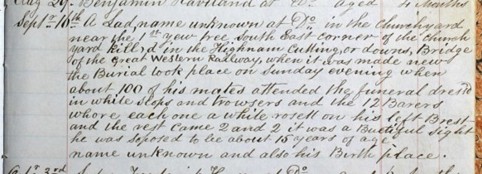 Aug 29. Benjamin Haviland at Do aged 4 Months
Septr 18th A Lad, name unknown at Do in the Churchyard
near the 1st yew tree South East corner of the Church
yard killed in the Highnam Cutting, or downs, Bridge
of the Great Western Railway, when it was made news
the Burial took place on Sunday evening when
about 100 of his mates attended the funeral dress'd
in white Slops and trowsers and the 12 Barers
whore each one a white rosett on his left Brest
and the rest Came 2 and 2 it was a Beutiful Sight
he was soposed to be about 15 years of age
name unknown and also his Birth place.